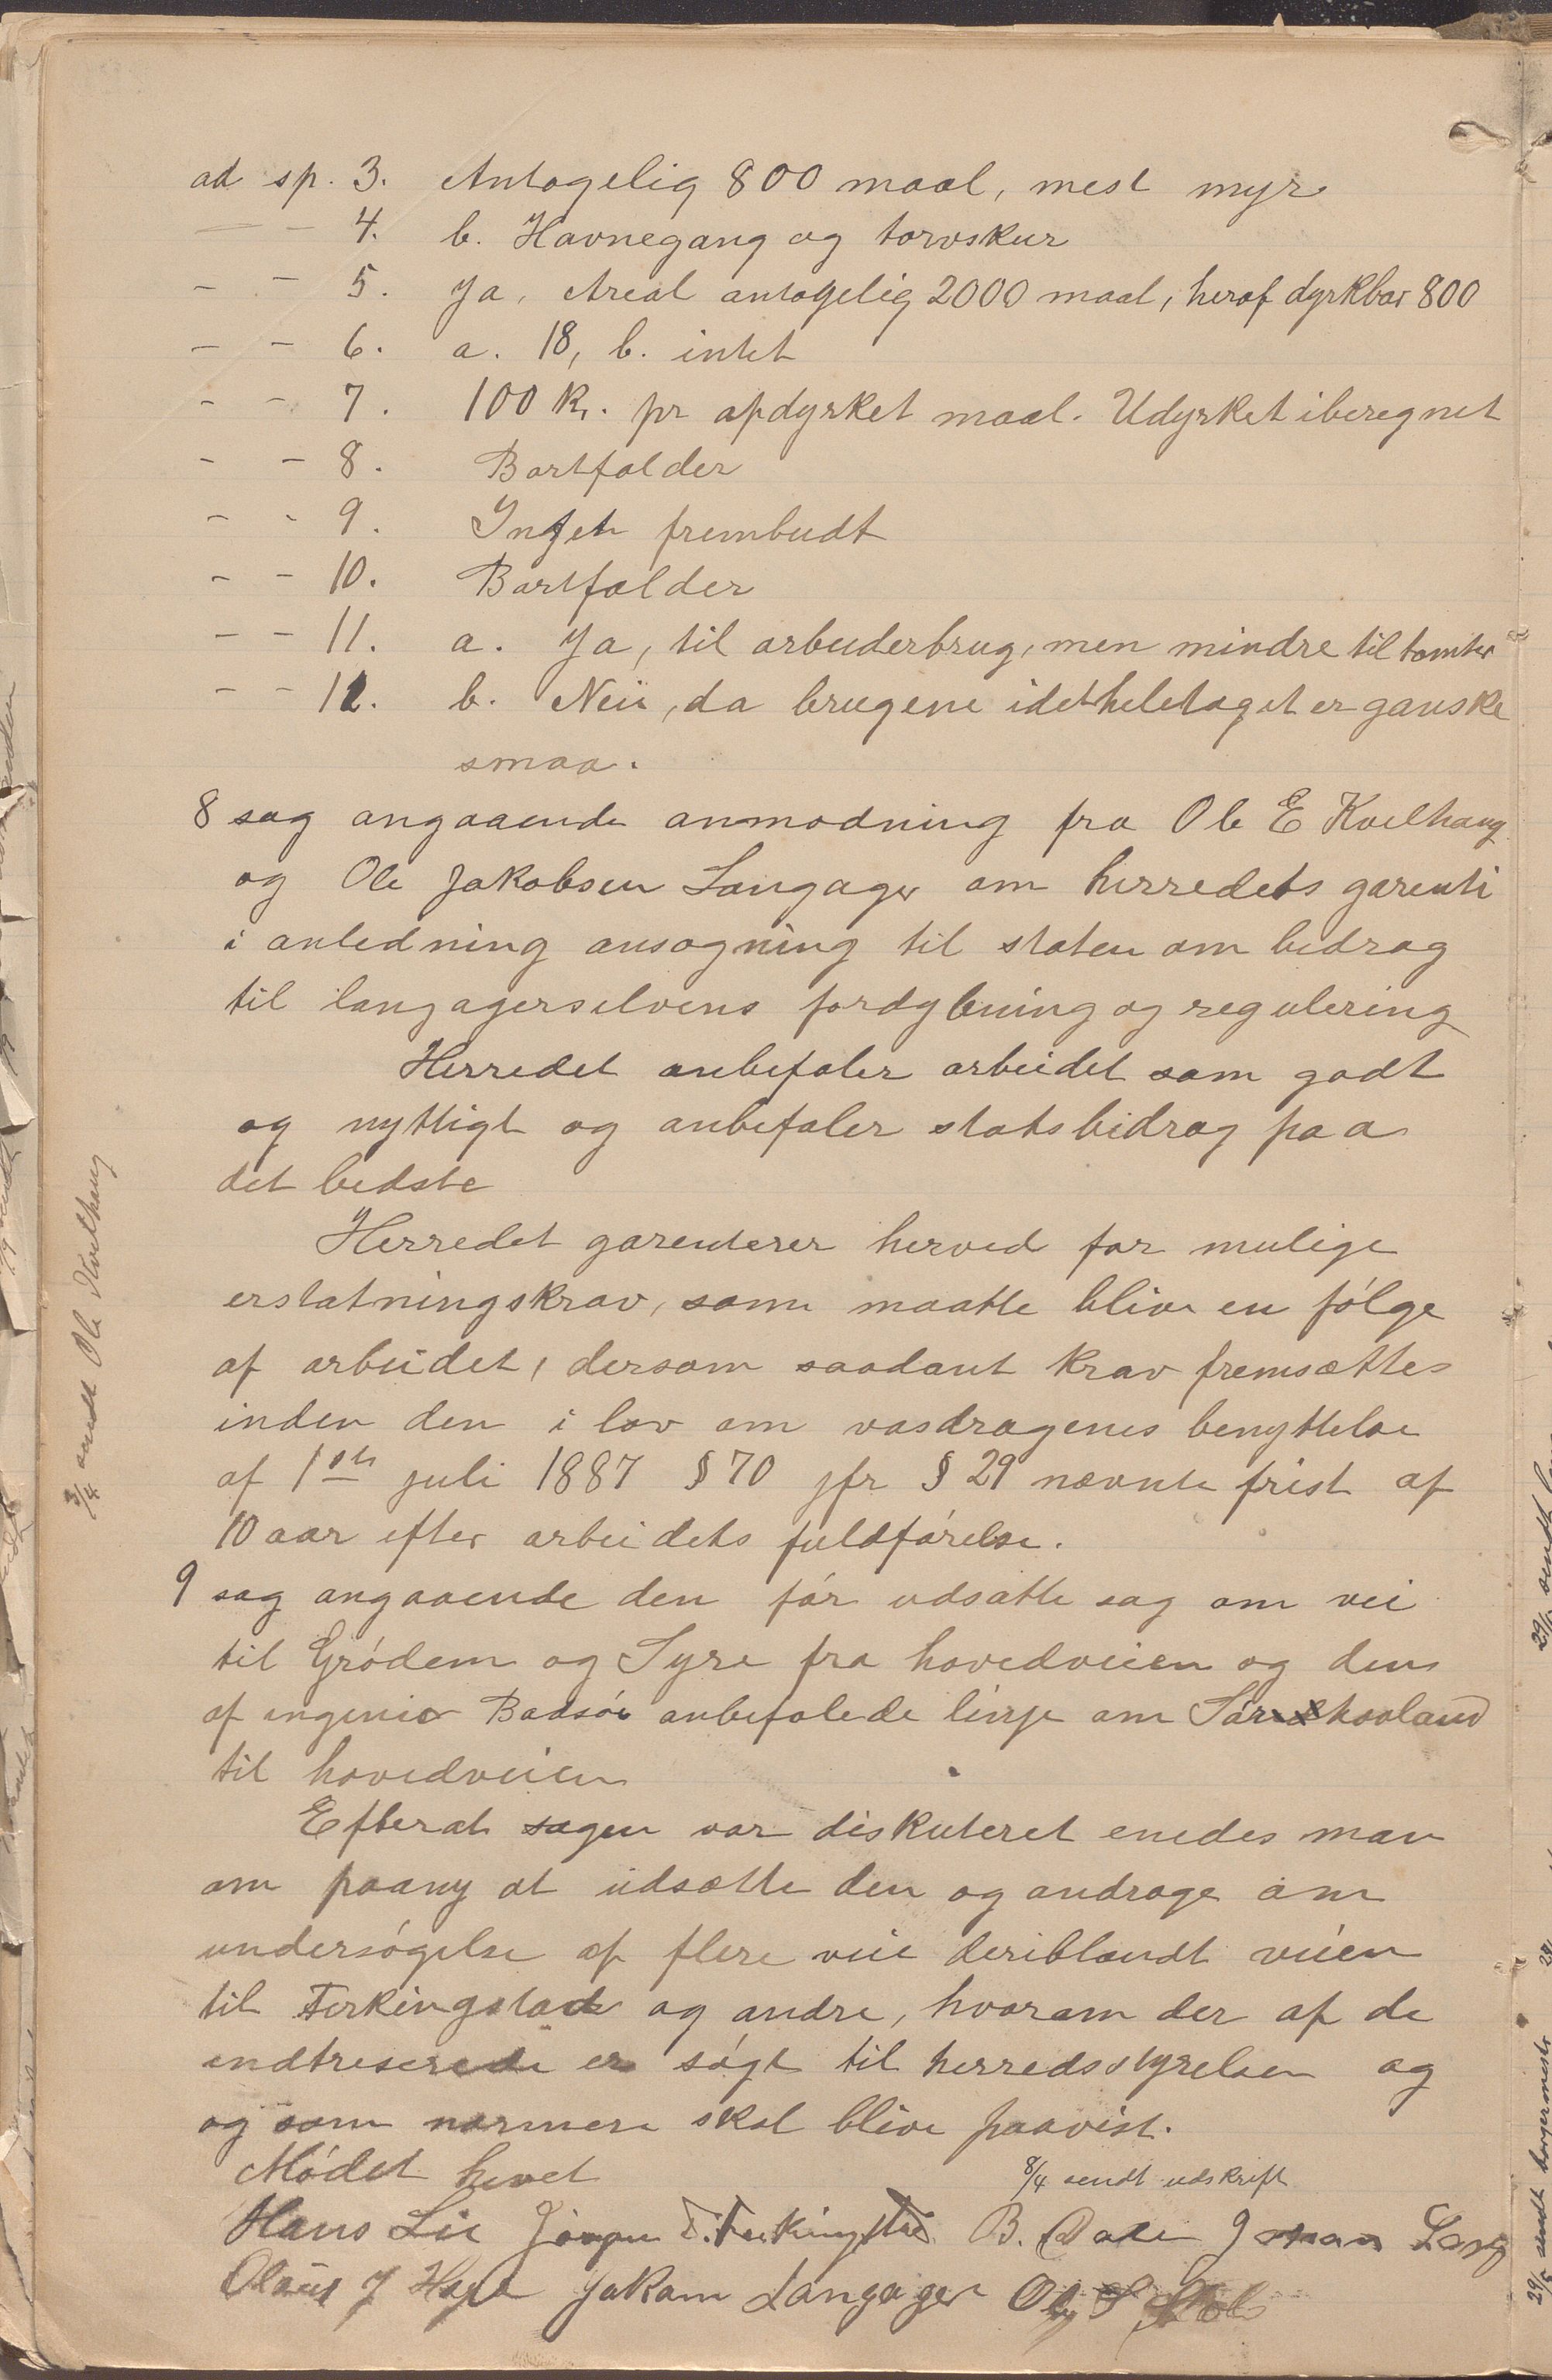 ad sp. 3. Antagelig 800 maal, mest myr
- - 4. b. Havnegang og torvskur
- - 5. Ja, Areal antagelig 2000 maal, heraf dyrkbar 800
- - 6. a. 18, b. intet
- - 7. 100 kr. pr opdyrket maal. Udyrket iberegnet
- - 8. Bortfalder
- - 9. Intet frembudt
- - 10. Bortfalder
- - 11. a. Ja, til arbeiderbrug, men mindre til tomter
- - 12. b. Nei, da brugene idetheletaget er ganske
smaa.
8 sag angaaende anmodning fra Ole E Kvelhaug
og Ole Jakobsen Langager om herredets garenti
i anledning ansøgning til staten om bidrag
til langagerselvens fordybning og regulering
Herredet anbefaler arbeidet som godt
og nyttigt og anbefaler statsbidrag paa
det bedste
Herredet garenterer herved for mulige
erstatningskrav, som maatte blive en følge
af arbeidet, dersom saadant krav fremsættes
inden den i lov om vasdragenes benyttelse
af 1ste juli 1887 § 70 jfr § 29 nævnte frist af
10 aar efter arbeidets fuldførelse.
3/4 sendt Ole Kvelhaug
9 sag angaaende den før udsatte sag om vei
til Grødem og Syre fra hovedveien og den
af ingeniør anbefalede linje om Sørhaaland
til hovedveien
Efterat sagen var diskuteret enedes man
om paany at udsætte den og andrage om
undersøgelse af flere veie deriblandt veien
til Ferkingstad og andre, hvorom der af de
indtreserede er søgt til herredsstyrelsen og
og som nærmere skal blive paavist.
Mødet hevet
8/4 sendt udskrift
Hans Lie Jørgen Ferkingstad B. Dale
Olaus J Jakam Langager